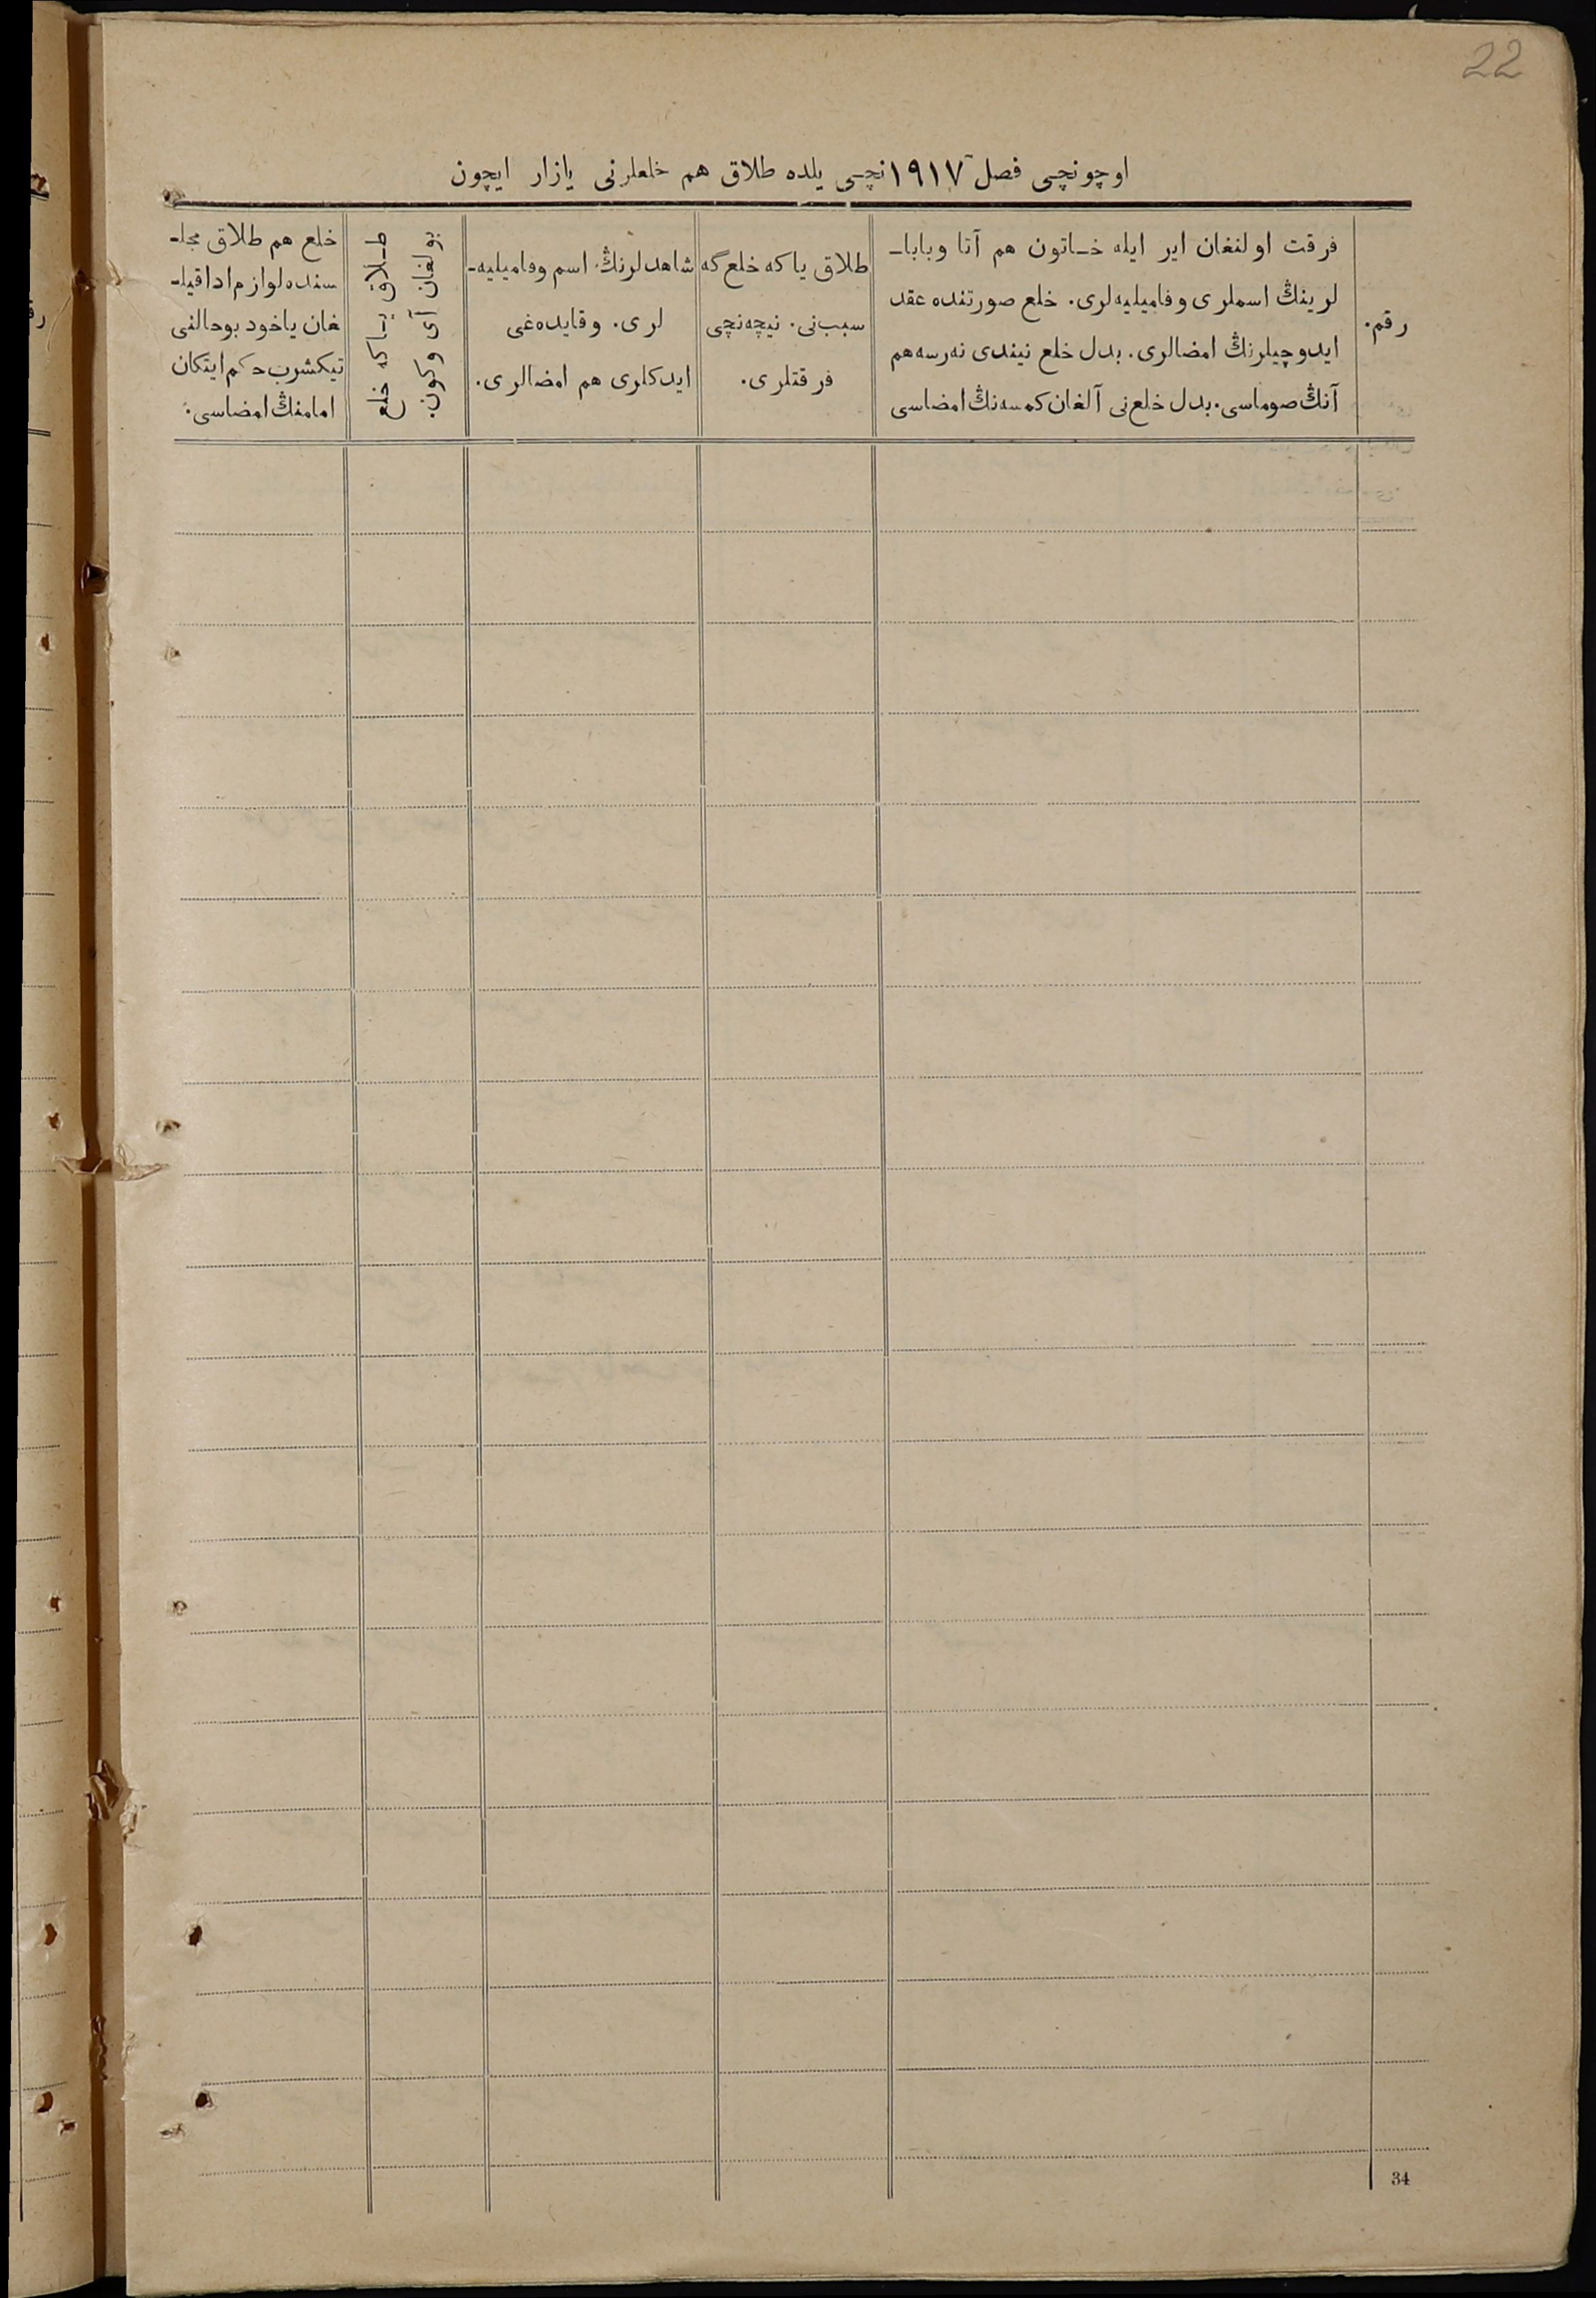 22
اوچونچی فصل ١٩١٧نچی یلده طلاق هم خلعلرنی یازار ایچون
رقم.
فرقت اولنغان ایر ایله خاتون هم آتا وبابا-
لرینڭ اسملری وفامیلیه‌لری. خلع صورتنده عقد
ایدوچیلرنڭ امضالری. بدل خلع نیندی نه‌رسه هم
آنڭ صوماسی. بدل خلع‌نی آلغان کمسه‌نڭ امضاسی
طلاق یاکه خلع‌گه
سبب‌نی. نیچه‌نچی
فرقتلری.
شاهدلرنڭ اسم وفامیلیه-
لری. وقایده‌غی
ایدکلری هم امضالری.
طلاق یاکه خلع
بولغان آی وکون.
خلع هم طلاق مجلـ
سنده لوازم ادا قیلـ
غان یاخود بوحالنی
تیکشرب حکم ایتکان
امامنڭ امضاسی.
34